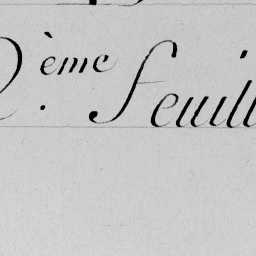 2.ème feuill